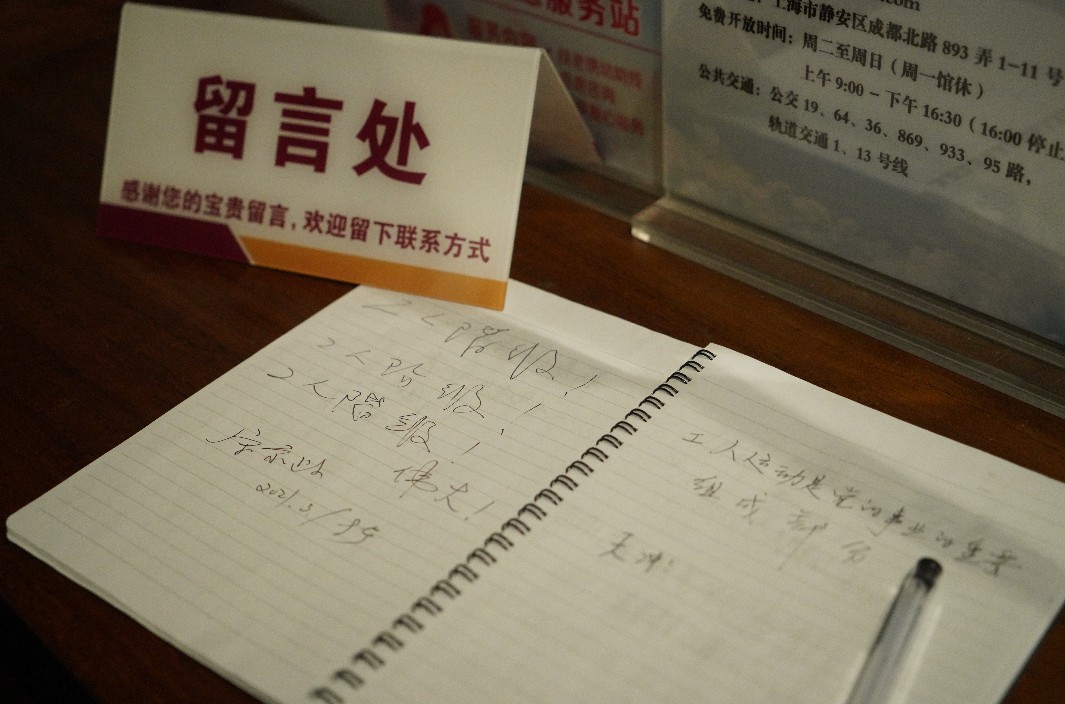 留言处
感谢您的宝贵留言，欢迎留下联系方式
服务站
com
上海市静安区成都北路 893 弄 1-11 号
免费开放时间：周二至周日（周一馆休）
上午 9:00 - 下午 16:30（16:00 停止
公共交通：公交 19、64、36、869、933、95 路，
轨道交通 1、13 号线
工人阶级！
工人阶级！
工人阶级！
伟大！
2021.3
工人运动是党的事业的重要
组成部分